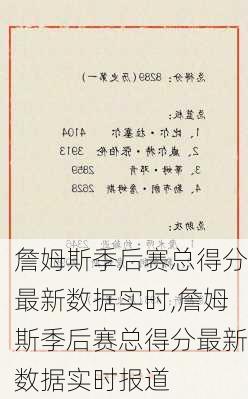 总得分：8289（历史第一）
总篮板：
1、比尔·拉塞尔 4104
2、威尔特·张伯伦 3913
3、蒂姆·邓肯 2859
4、勒布朗·詹姆斯
总助攻：
1、魔术师·约翰逊 2346
詹姆斯季后赛总得分
最新数据实时,詹姆
斯季后赛总得分最新
数据实时报道